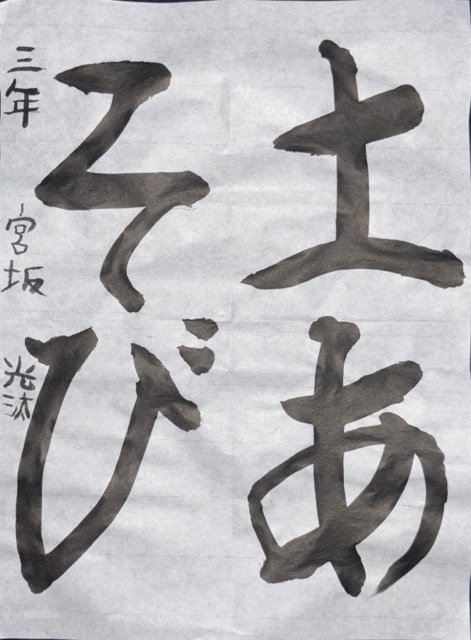 土あ
そび
三年 宮坂 光汰